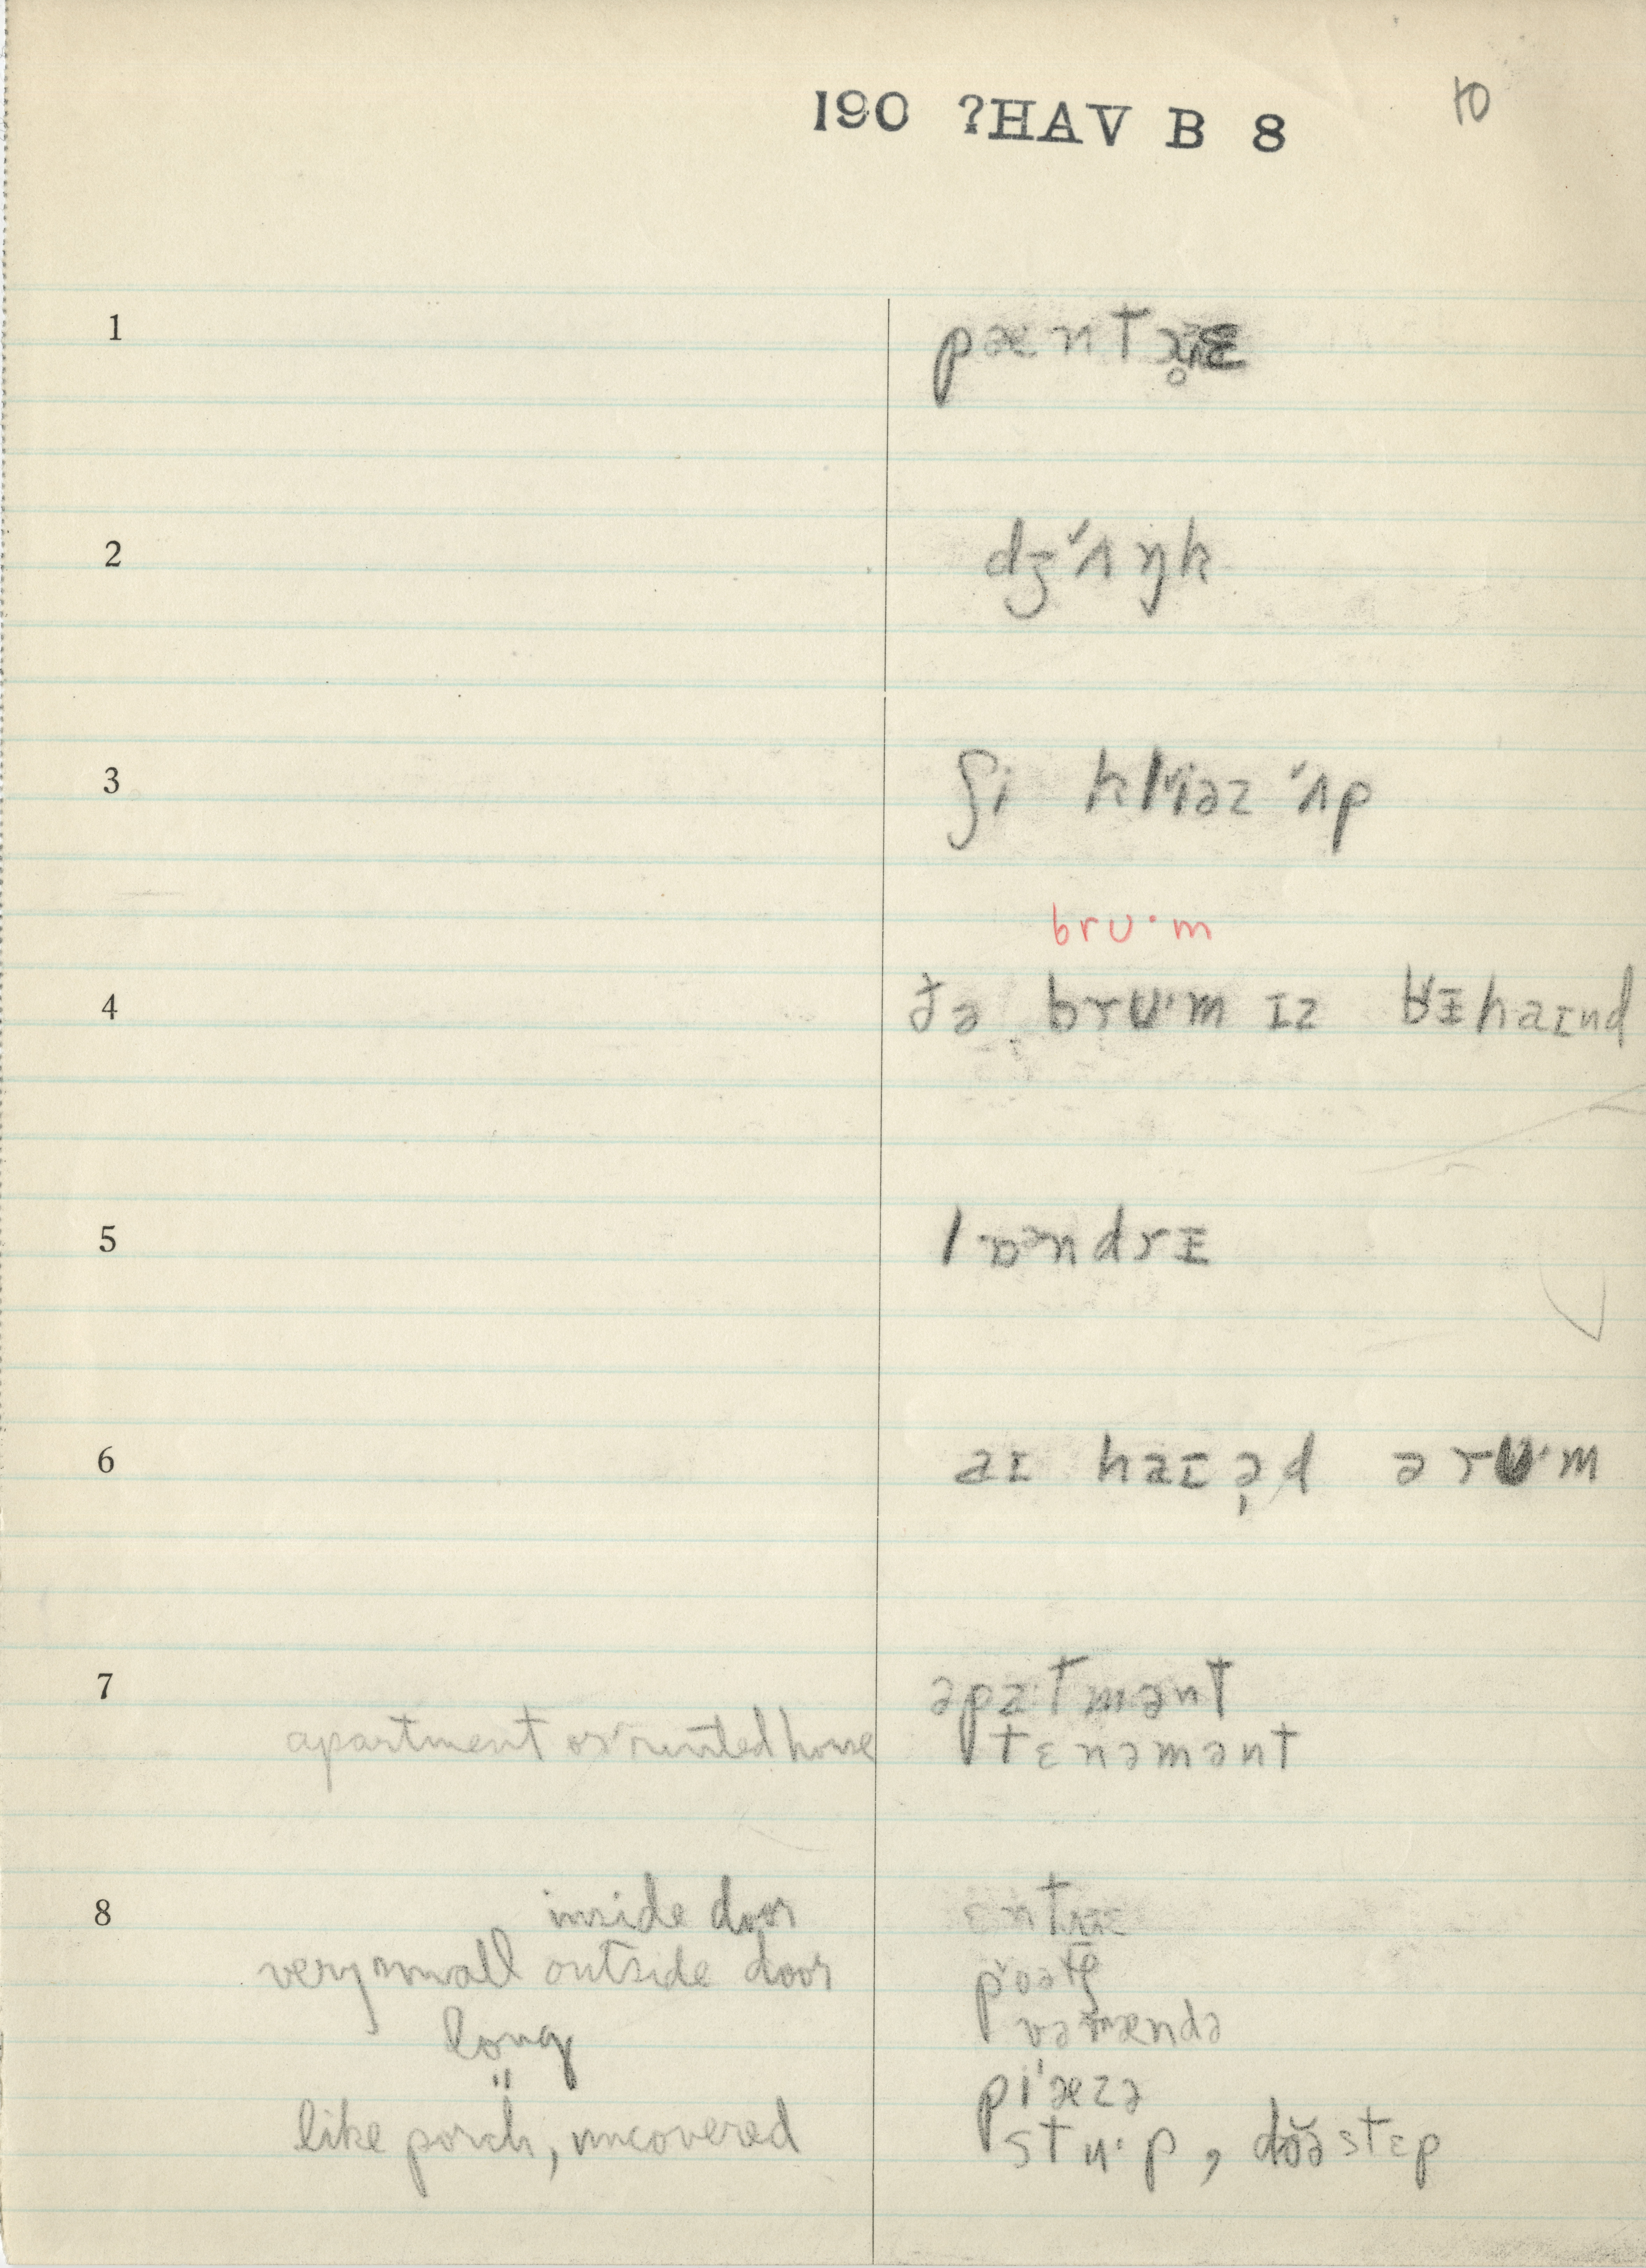 190 ?HAV B 8
10
1 pæntr̥ɪ
2 dʒ˅ʌŋk
3 ʃi kl˅iəz ˅ʌp
bru·m
4 ðə bru·m ɪz bɨhaɪnd
5 lɒəndrɨ
6 aɪ haɪə̣d ə ru·m
7 əpa·tmənt
apartment or rented house tɛnəmənt
8 inside door ɛntrɪ
very small outside door p˅oətʃ
long vərændə
" pi'æzə
like porch, uncovered stu·p, dŏəstɛp